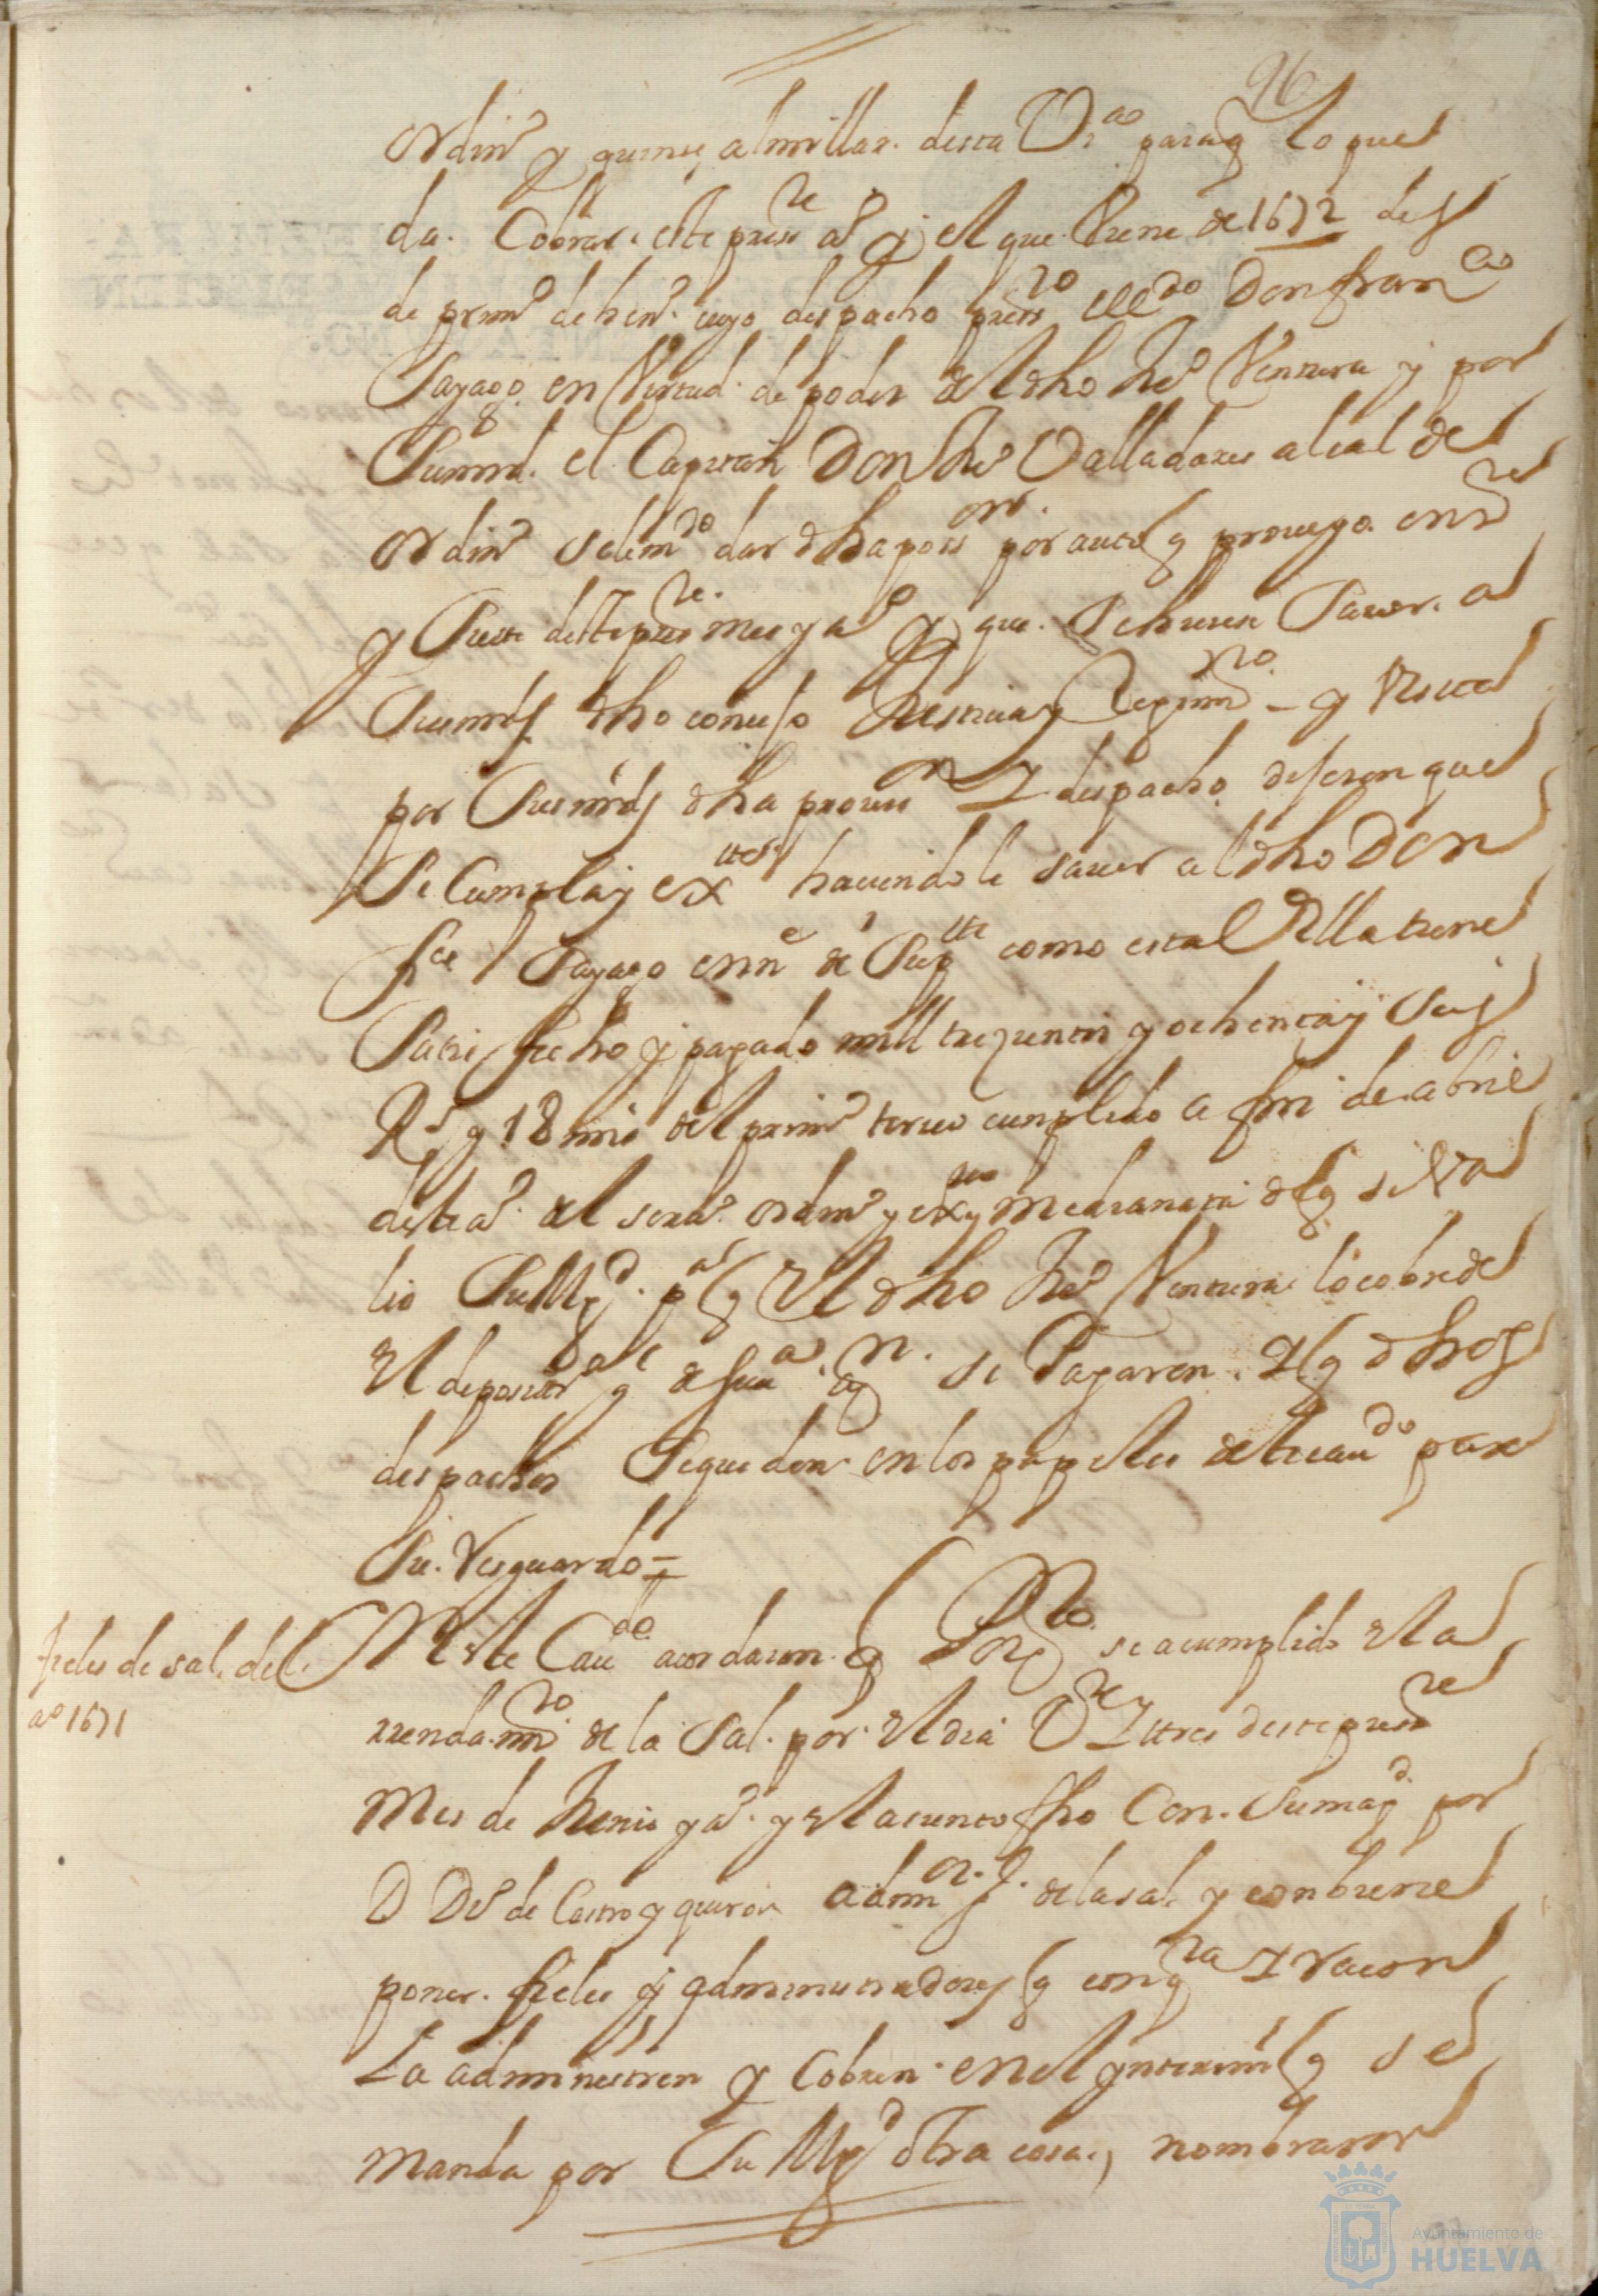 96
ordinº y quinse al millar. desta Vª paraq lo pue
da. Cobrar. este presᵗᵉ aº y el que Viene de 1672 des
de primº de henº. cuyo despacho presᵗᵒ el lᵈᵒ Don franᶜᵒ
Sayago en Virtud de poder del dho Juº Ventura y por
Su md. el Capitan Don Juº Valladares alcalde
ordinº se le mᵈᵒ dar dha posᵒⁿ. por auto q proueyo en dies
y Siete deste presᵗᵉ. mes y aº y que. Se hiciese Sauer. a
Sus mrds dho consejo Justicia y Regimᵗᵒ - y Vista
por Sus mrds dha prouisⁿ Y despacho dijeron que
Se Cumpla y exᵗᵉ haciendole sauer al dho Don
fᶜᵒ Sayago en nᵉ de Su pᵗᵉ como esta Villa tiene
Satisfecho y pagado mill trezientos y ochenta y Seis
Rˢ y 18 mrs del primº tercio cumplido a fin de abril
deste aº. del seruº. ordinº y extᵣᵒ y medianata de q se Va
lio Su Mgᵈ. pᵃ q El dho Juº Ventura lo cobre de
El depositʳⁱᵒ gˡ de seuª. aqⁿ. se Pagaron. Y q dhos
despachos Se queden en los papeles deste cauᵈᵒ para
Su. Resguardo =
fieles de sal. del.
aº 1671
En este Cauᵈᵒ acordaron. q Por qᵗᵒ se a cumplido el a
rrendamᵗᵒ de la Sal. por El dia Vᵗᵉ Y tres deste presᵗᵉ
Mes de Junio y aº. y el asiento fho Con. Su magᵈ. por
D Dº de Castro y quiros admⁿ.ᵒʳ gˡ. de la sal y conbiene
poner. fieles y administradores q con qᵗᵃ Y racon
La administren y Cobren. en el ynterim q se
manda por Su Mgᵈ otra cosa., nombraron
Ayuntamiento de
HUELVA